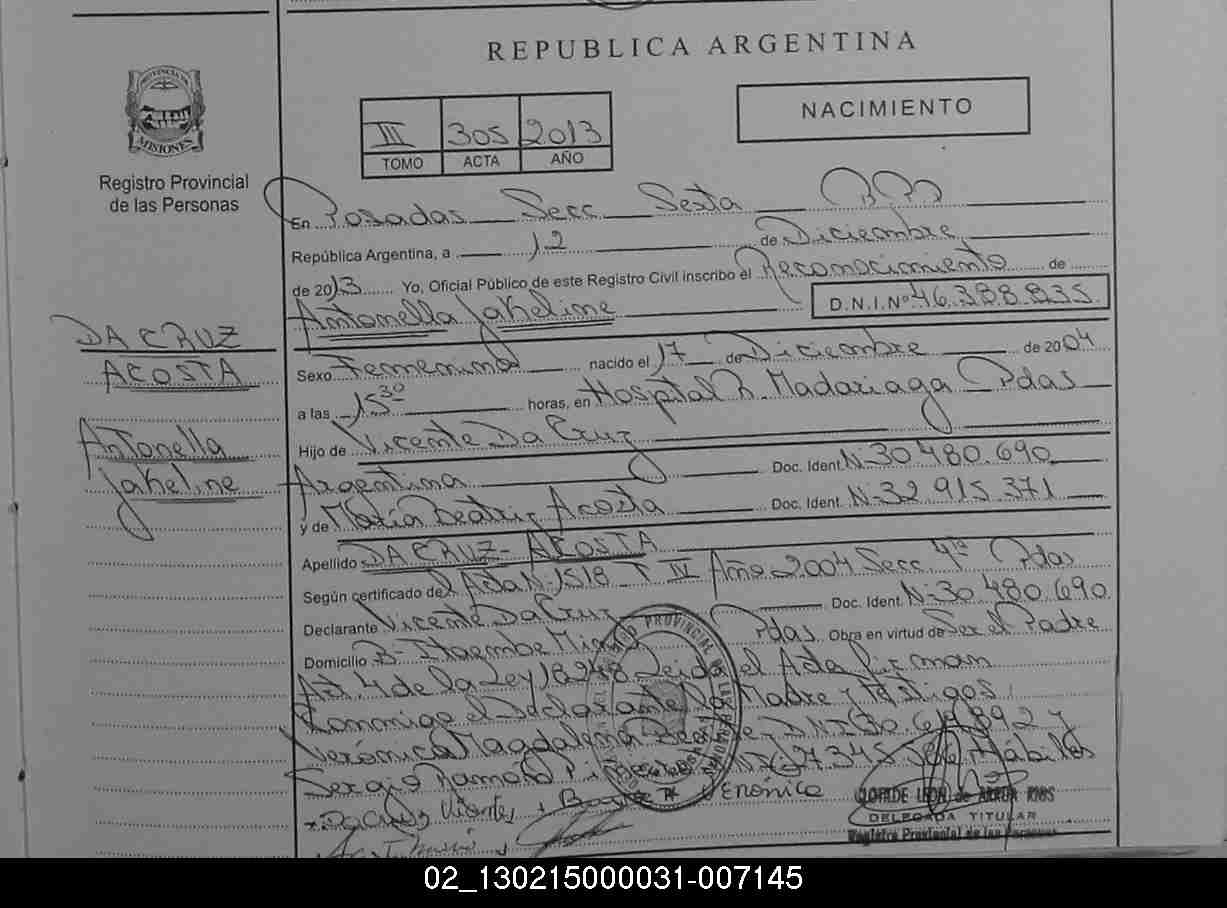 REPUBLICA ARGENTINA
PROVINCIA DE
MISIONES
Registro Provincial
de las Personas
III 305 2013
TOMO ACTA AÑO
NACIMIENTO
En Posadas Secc Sexta
República Argentina, a 12 de Diciembre
de 2013 Yo, Oficial Público de este Registro Civil inscribo el Reconocimiento de
Antonella Jakeline D.N.I.Nº 46.388.835
DA CRUZ
ACOSTA
Antonella
Jakeline
Sexo Femenino nacido el 17 de Diciembre de 2004
a las 15 30 horas, en Hospital R. Madariaga Pdas
Hijo de Vicente Da Cruz
Argentina Doc. Ident. Nº 30 480.690
y de María Beatriz Acosta Doc. Ident. Nº 32 915.371
Apellido DA CRUZ - ACOSTA
Según certificado de Acta Nº 1518 T IV Año 2004 Secc 4ta Pdas
Declarante Vicente Da Cruz Doc. Ident. Nº 30 480.690
Domicilio Bº Itaembe Pdas Obra en virtud de Ser el Padre
Art. 4 de la Ley 18248 Leida el Acta firman
Conmigo el Declarante la Madre y testigos
Verónica Magdalena DNI
Sergio Ramón Hábiles
Da Cruz Vicente Verónica
DELEGADA TITULAR
Registro Provincial de las Personas
02_130215000031-007145